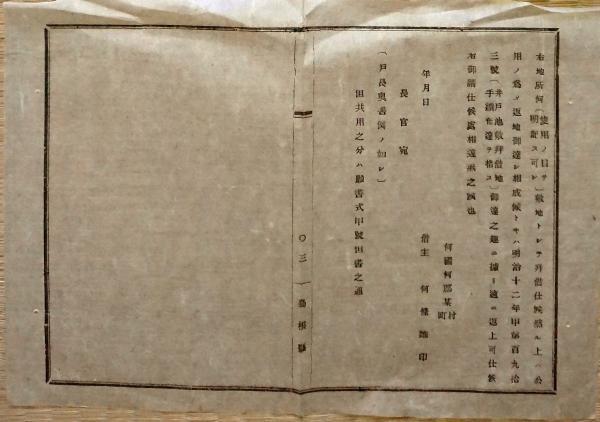 右地所何〔使用ノ目ヲ明記ス可シ〕敷地トシテ拜借仕候然ル上ハ公
用ノ爲メ返地御達シ相成候トキハ明治十二年甲第百九拾
三號〔井戸池敷拜借地手續布達ヲ指ス〕御達之趣ニ據リ速ニ返上可仕候
右御請仕候處相違無之候也
年月日
何國何郡某村町
借主 何條誰印
長官宛
〔戸長奥書例ノ如シ〕
但共用之分ハ願書式甲號但書之通
〇三 島根縣